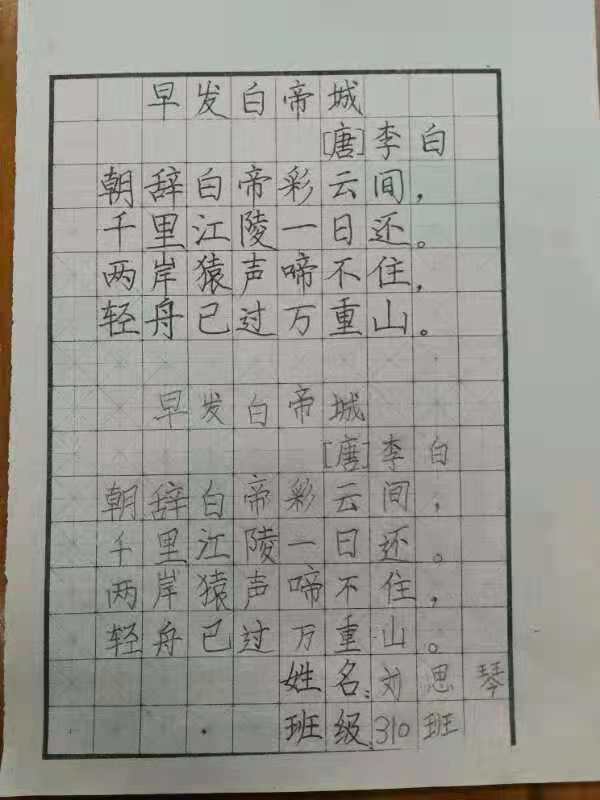 早发白帝城
[唐]李白
朝辞白帝彩云间，
千里江陵一日还。
两岸猿声啼不住，
轻舟已过万重山。
早发白帝城
[唐]李白
朝辞白帝彩云间，
千里江陵一日还。
两岸猿声啼不住，
轻舟已过万重山。
姓名：刘思琴
班级：310班